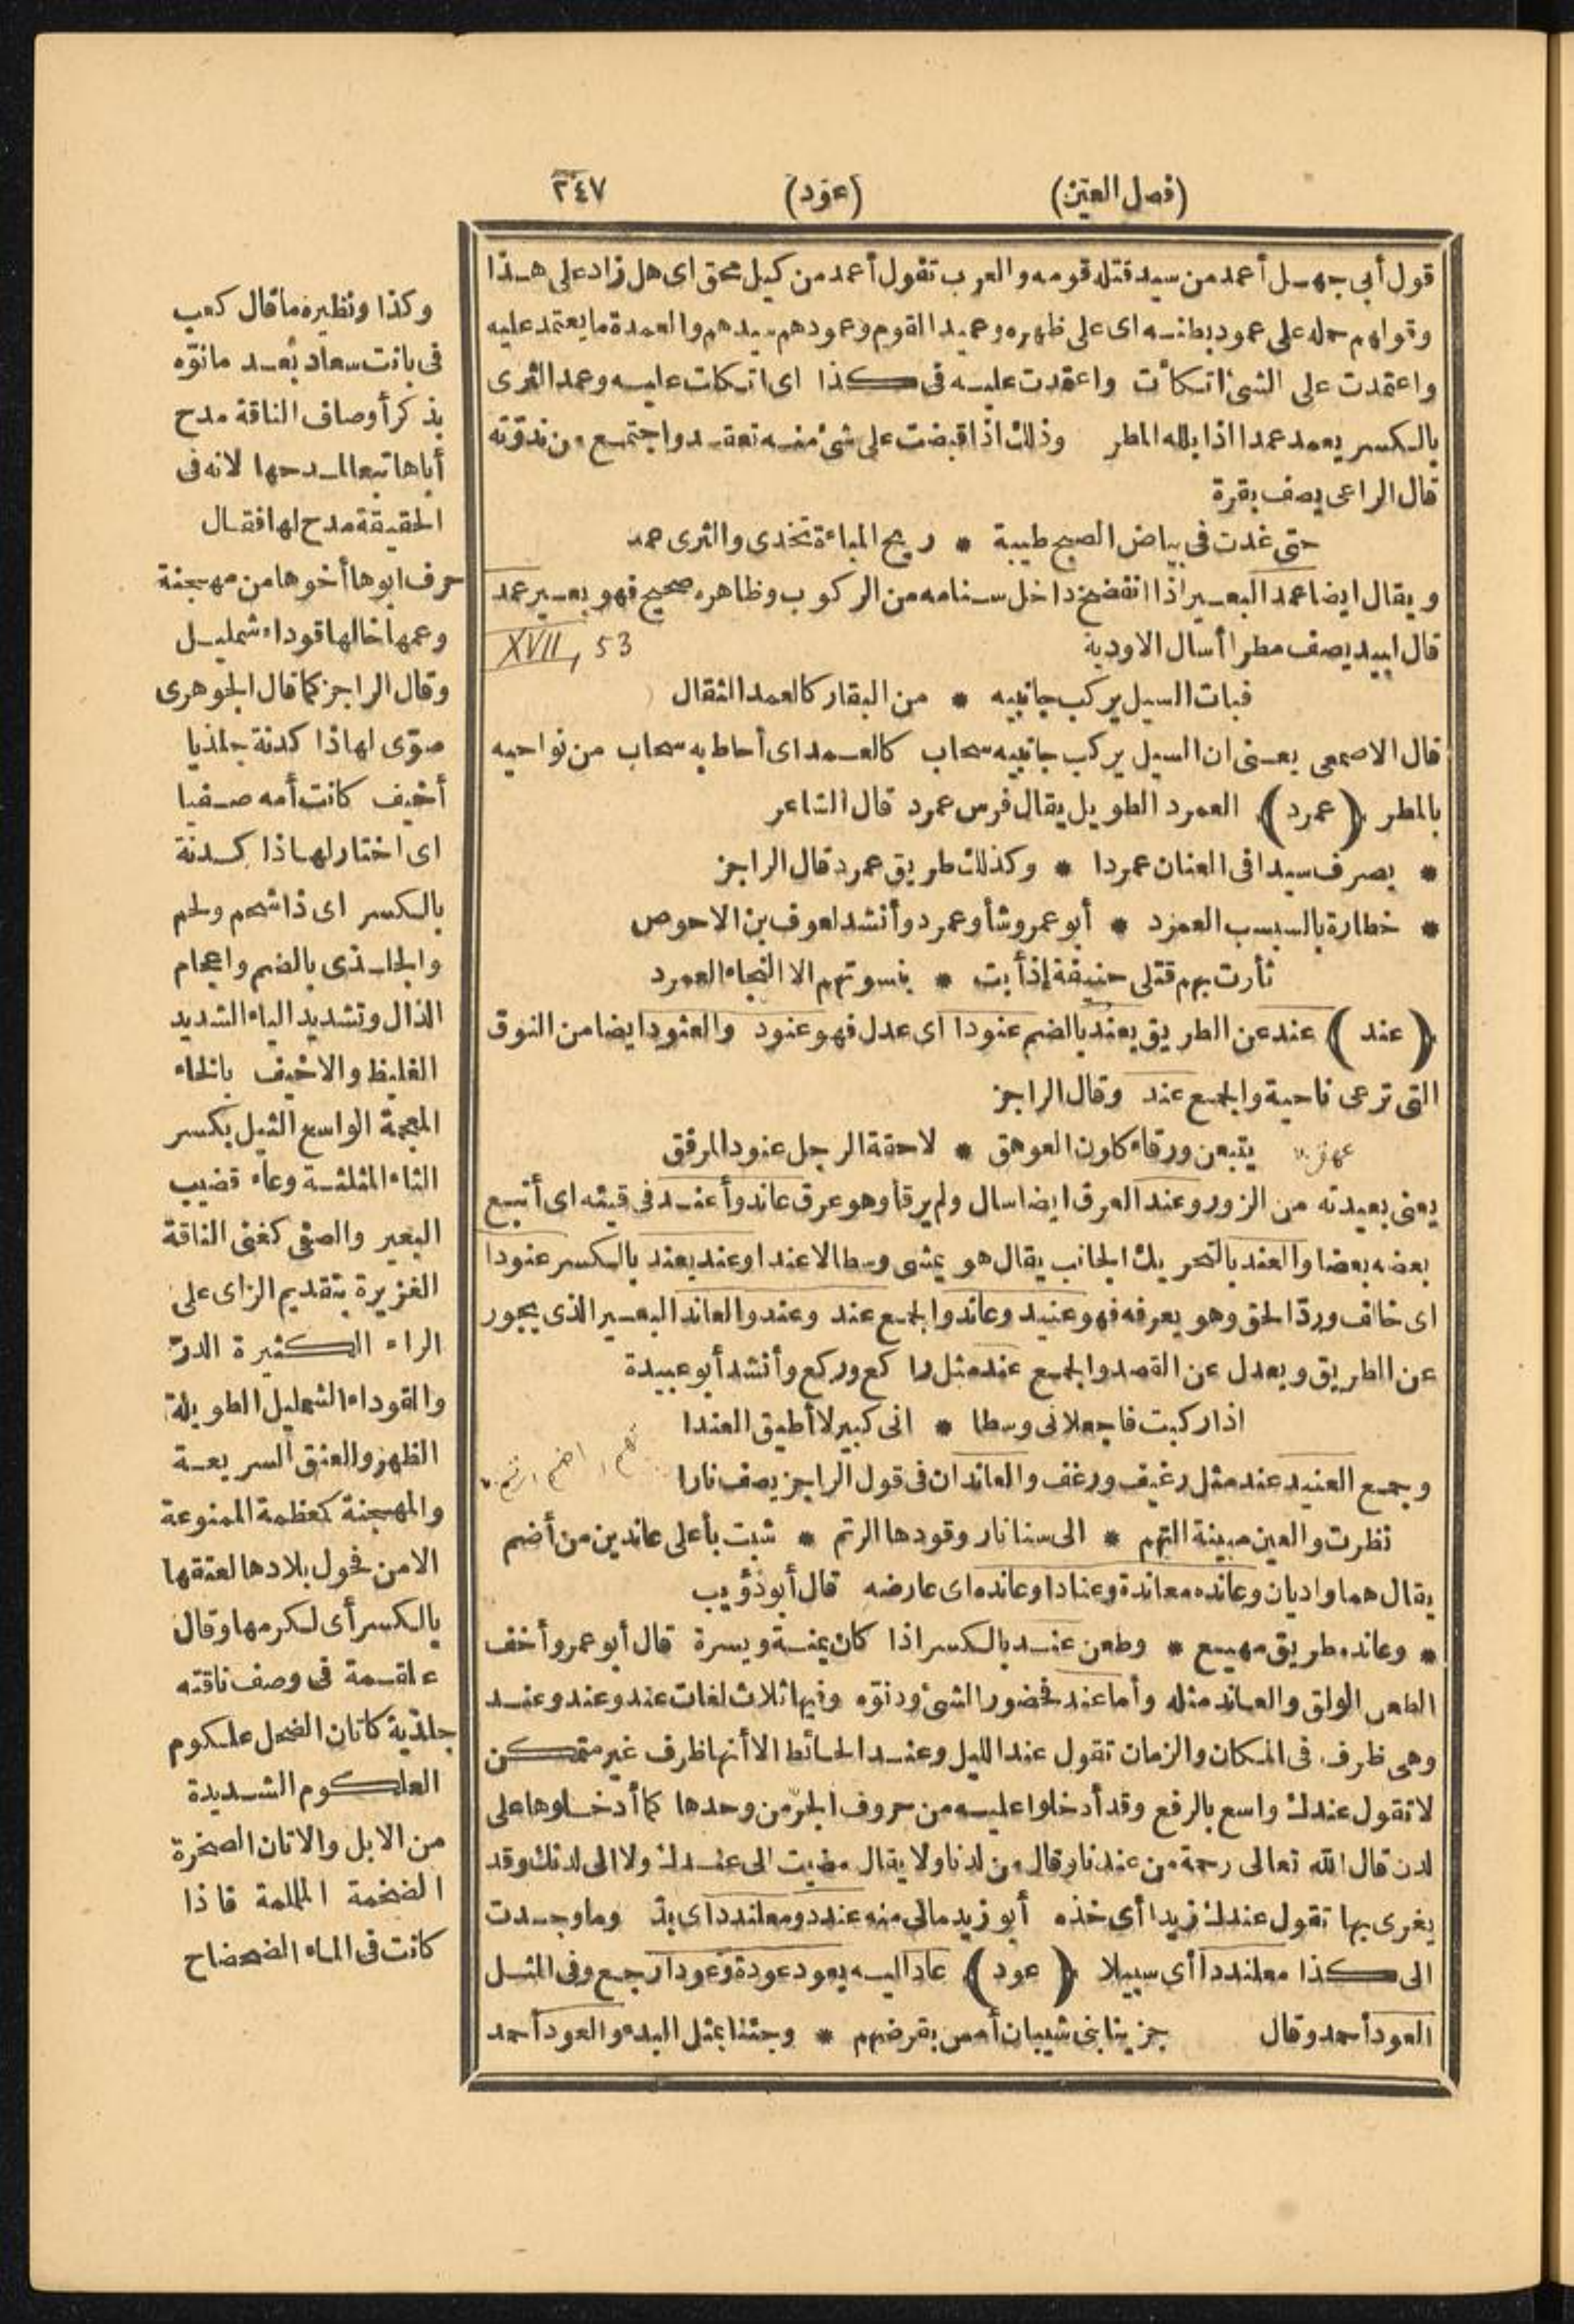 (فصل العين) (عود) ٢٤٧
قول أبى جهل أعمد من سيد قتله قومه والعرب تقول أعمد من كيل محق اى هل زاد على هذا
وقولهم حمله على عمود بطنه اى على ظهره وعميد القوم وعمودهم سيدهم والعمدة ما يعتمد عليه
واعتمدت على الشئ اتكأت واعتمدت عليه فى كذا اى اتكلت عليه وعمد الثرى
بالكسر يعمد عمدا اذا بلله المطر وذلك اذا قبضت على شئ منه تعقد واجتمع من ندوّته
قال الراعى يصف بقرة
حتى غدت فى بياض الصبح طيبة * ريح المباءة تخدى والثرى عمد
ويقال ايضا عمد البعير اذا انفضخ داخل سنامه من الركوب وظاهره صحيح فهو بعير عمد
قال لبيد يصف مطرا أسال الاودية XVII, 53
فبات السيل يركب جانبيه * من البقار كالعمد الثقال
قال الاصمعى يعنى ان السيل يركب جانبيه سحاب كالعمد اى أحاط به سحاب من نواحيه
بالمطر (عمرد) العمرد الطويل يقال فرس عمرد قال الشاعر
* يصرف سيدا فى العنان عمردا * وكذلك طريق عمرد قال الراجز
* خطارة بالسبسب العمرد * أبو عمرو شأو عمرد وأنشد لعوف بن الاحوص
ثأرت بهم قتلى حنيفة إذ أبت * بنسوتهم الا النجاء العمرد
(عند) عند عن الطريق يعند بالضم عنودا اى عدل فهو عنود والعنود ايضا من النوق
التى ترعى ناحية والجمع عند وقال الراجز
يتبعن ورقاء كلون العوهق * لاحقة الرجل عنود المرفق
يعنى بعيدته من الزور وعند العرق ايضا سال ولم يرقأ وهو عرق عاند وأعند فى قيئه اى أتبع
بعضه بعضا والعند بالتحريك الجانب يقال هو يمشى وسطا لا عندا وعند يعند بالكسر عنودا
اى خالف وردّ الحق وهو يعرفه فهو عنيد وعاند والجمع عند وعند والعاند البعير الذى يجور
عن الطريق ويعدل عن القصد والجمع عند مثل راكع وركع وأنشد أبو عبيدة
اذا ركبت فاجعلانى وسطا * انى كبير لا أطيق العندا
وجمع العنيد عند مثل رغيف ورغف والعاندان فى قول الراجز يصف نارا
نظرت والعين مبينة التهم * الى سنا نار وقودها الرتم * شبت بأعلى عاندين من أضم
يقال هما واديان وعانده معاندة وعنادا وعانده اى عارضه قال أبو ذؤيب
* وعانده طريق مهيع * وطعن عند بالكسر اذا كان يمنة ويسرة قال أبو عمرو أخف
الطعن الولق والعاند مثله وأما عند فحضور الشئ ودنوّه وفيها ثلاث لغات عند وعند وعند
وهى ظرف فى المكان والزمان تقول عند الليل وعند الحائط الا أنها ظرف غير متمكن
لا تقول عندك واسع بالرفع وقد أدخلوا عليه من حروف الجرّ من وحدها كما أدخلوها على
لدن قال الله تعالى رحمة من عندنا وقال من لدنا ولا يقال مضيت الى عندك ولا الى لدنك وقد
يغرى بها تقول عندك زيدا أى خذه أبو زيد مالى منه عندد ومعلندد اى بدّ وما وجدت
الى كذا معلنددا أى سبيلا (عود) عاد اليه يعود عودة وعودا رجع وفى المثل
العود أحمد وقال جزينا بنى شيبان أمس بقرضهم * وجئنا بمثل البدء والعود أحمد
وكذا ونظيره ما قال كعب
فى بانت سعاد بعد ما نوّه
بذكر أوصاف الناقة مدح
أباها تبعا لمدحها لانه فى
الحقيقة مدح لها فقال
حرف ابوها أخوها من مهجنة
وعمها خالها قوداء شمليل
وقال الراجز كما قال الجوهرى
صوّى لها ذا كدنة جلذيا
أخيف كانت أمه صفيا
اى اختار لها ذا كدنة
بالكسر اى ذا شحم ولحم
والجلذى بالضم واعجام
الذال وتشديد الياء الشديد
الغليظ والاخيف بالخاء
المعجمة الواسع الثيل بكسر
الثاء المثلثة وعاء قضيب
البعير والصفى كغنى الناقة
الغزيرة بتقديم الزاى على
الراء الكثيرة الدرّ
والقوداء الشمليل الطويلة
الظهر والعنق السريعة
والمهجنة كمعظمة الممنوعة
الا من فحول بلادها لعتقها
بالكسر أى لكرمها وقال
علقمة فى وصف ناقته
جلذية كاتان الضحل علكوم
العلكوم الشديدة
من الابل والاتان الصخرة
الضخمة الململمة فاذا
كانت فى الماء الضحضاح